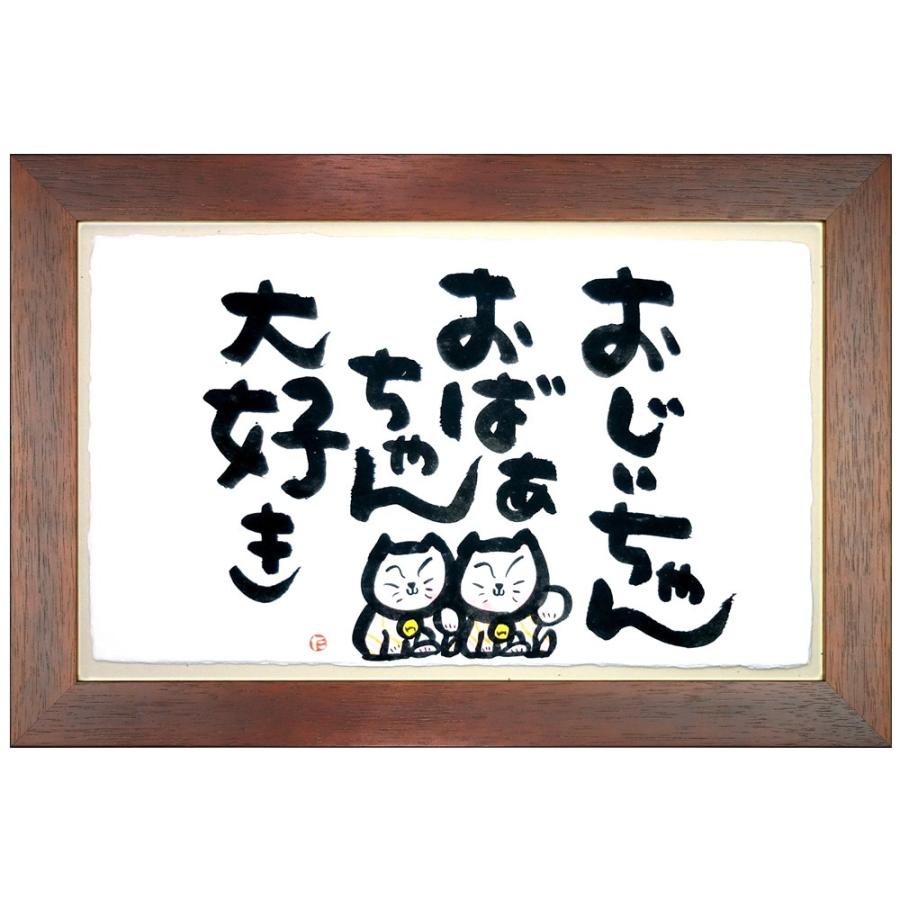 おじぃちゃん
おばぁ
ちゃん
大好き